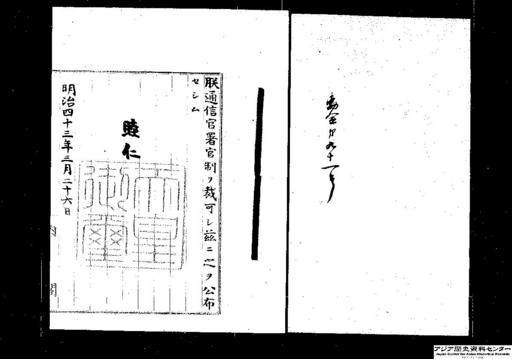 勅令第九十一号
朕通信官署官制ヲ裁可シ茲ニ之ヲ公布
セシム
睦仁
天皇
御璽
明治四十三年三月二十六日
内閣
アジア歴史資料センター
Japan Center for Asian Historical Records